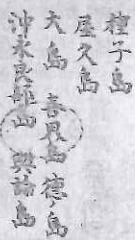 種子島
屋久島
大島 喜界島 徳ノ島
沖永良部島 與論島